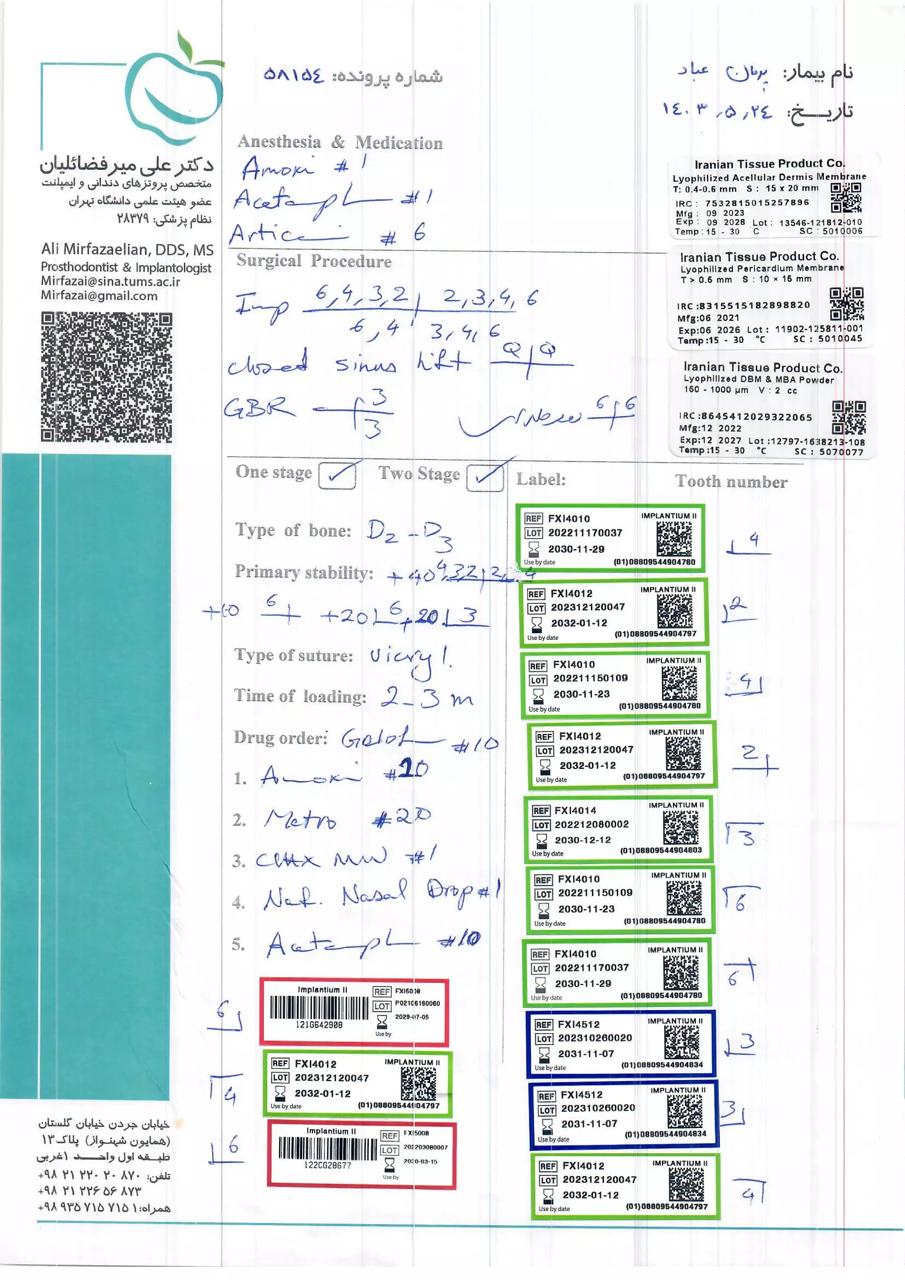 شماره پرونده: ۵۸۱۵٤
نام بیمار: عباد
تاریخ: ۱٤۰۳،۵،۲٤
دکتر علی میرفضائلیان
متخصص پروتزهای دندانی و ایمپلنت
عضو هیئت علمی دانشگاه تهران
نظام پزشکی: ۲۸۳۷۹
Ali Mirfazaelian, DDS, MS
Prosthodontist & Implantologist
Mirfazai@sina.tums.ac.ir
Mirfazai@gmail.com
Anesthesia & Medication
Amoxi #1
Acetamph #1
Artica # 6
Iranian Tissue Product Co.
Lyophilized Acellular Dermis Membrane
T: 0.4-0.6 mm S : 15 x 20 mm
IRC : 7532815015257896
Mfg : 09 2023
Exp : 09 2028 Lot : 13546-121812-010
Temp :15 - 30 C SC : 5010006
Iranian Tissue Product Co.
Lyophilized Pericardium Membrane
T > 0.6 mm S : 10 × 15 mm
IRC :8315515182898820
Mfg:06 2021
Exp:06 2026 Lot : 11902-125811-001
Temp:15 - 30 °C SC : 5010045
Iranian Tissue Product Co.
Lyophilized DBM & MBA Powder
150 - 1000 µm V : 2 cc
IRC :8645412029322065
Mfg:12 2022
Exp:12 2027 Lot :12797-1638213-108
Temp:15 - 30 °C SC : 5070077
Surgical Procedure
Imp 6,4,3,2 | 2,3,4,6
6,4 3,4,6
closed sinus lift
GBR 3
3
6 6
One stage ✓ Two Stage ✓
Type of bone: D2 - D3
Primary stability: +40 4,3,2 2,4
+10 6 +20 6 +20 3
Type of suture: Vicryl.
Time of loading: 2-3 m
Drug order: #10
1. Amoxi #20
2. Metro #20
3. CHX MW #1
4. Naf. Nasal Drop #1
5. Acetamph #10
Label: Tooth number
REF FXI4010 IMPLANTIUM II
LOT 202211170037
2030-11-29
Use by date (01)08809544904780
4
REF FXI4012 IMPLANTIUM II
LOT 202312120047
2032-01-12
Use by date (01)08809544904797
2
REF FXI4010 IMPLANTIUM II
LOT 202211150109
2030-11-23
Use by date (01)08809544904780
4
REF FXI4012 IMPLANTIUM II
LOT 202312120047
2032-01-12
Use by date (01)08809544904797
2
REF FXI4014 IMPLANTIUM II
LOT 202212080002
2030-12-12
Use by date (01)08809544904803
3
REF FXI4010 IMPLANTIUM II
LOT 202211150109
2030-11-23
Use by date (01)08809544904780
6
REF FXI4010 IMPLANTIUM II
LOT 202211170037
2030-11-29
Use by date (01)08809544904780
6
REF FXI4512 IMPLANTIUM II
LOT 202310260020
2031-11-07
Use by date (01)08809544904834
3
REF FXI4512 IMPLANTIUM II
LOT 202310260020
2031-11-07
Use by date (01)08809544904834
3
REF FXI4012 IMPLANTIUM II
LOT 202312120047
2032-01-12
Use by date (01)08809544904797
4
6
Implantium II REF
LOT P02106160060
2029-07-05
Use by
4
REF FXI4012 IMPLANTIUM II
LOT 202312120047
2032-01-12
Use by date (01)08809544904797
6
Implantium II REF FXI5008
LOT
122CG28677
Use by
خیابان جردن خیابان گلستان
(همایون شهنواز) پلاک ۱۳
طبقه اول واحد ۱ غربی
تلفن: ۸۷۰ ۲۰ ۲۲۰ ۲۱ ۹۸+
۸۷۳ ۵۶ ۲۲۶ ۲۱ ۹۸+
همراه: ۱ ۷۱۵ ۷۱۵ ۹۳۵ ۹۸+